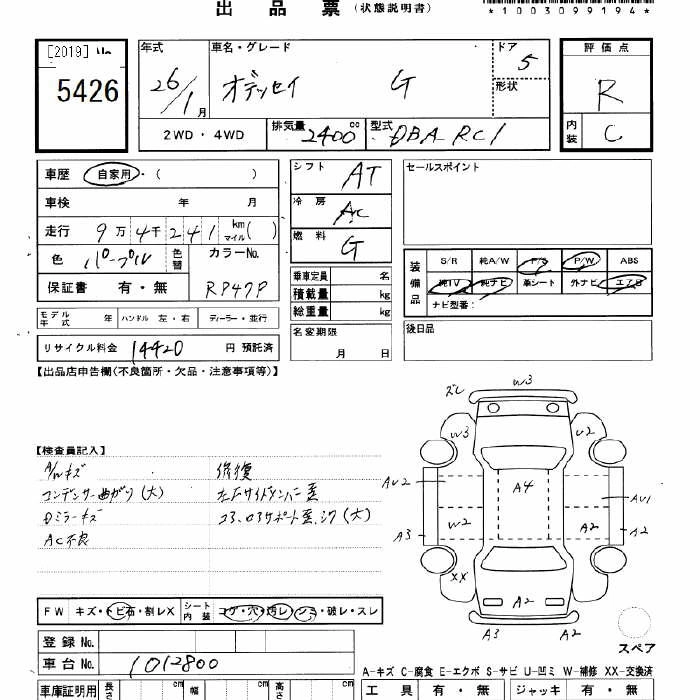 出品票 (状態説明書)
*1003099194*
[2019] No
5426
年式 26/1 月
車名・グレード オデッセイ G
ドア 5
形状
評価点
R
内装 C
2WD・4WD
排気量 2400 cc
型式 DBA RC1
車歴 自家用・( )
車検 年 月
走行 9万4千241 km マイル( )
色 パープル 色替 カラーNo. RP47P
保証書 有・無
シフト AT
冷房 AC
燃料 G
乗車定員 名
積載量 kg
総重量 kg
名変期限 月 日
セールスポイント
装備品 S/R 純A/W P/S P/W ABS
純TV 純ナビ 革シート 外ナビ エアB
ナビ型番:
後日品
モデル年式 年 ハンドル 左・右 ディーラー・並行
リサイクル料金 14420 円 預託済
【出品店申告欄(不良箇所・欠品・注意事項等)】
【検査員記入】
A/Wキズ
コンデンサー曲がり(大)
Dミラーキズ
AC不良
修復
左Fサイドメンバー歪
コア、ロアサポート歪、
(大)
ズレ W3
W3 U2
AU2 A4 AU1
A3 W2 A2 A2
XX A2
A3 A2
スペア
FW キズ・トビ石・割レX シート内装 コゲ・穴・汚レ・シミ・破レ・スレ
登録No.
車台No. 1012800
A-キズ C-腐食 E-エクボ S-サビ U-凹ミ W-補修 XX-交換済
車庫証明用 長さ cm 幅 cm 高さ cm
工具 有・無 ジャッキ 有・無